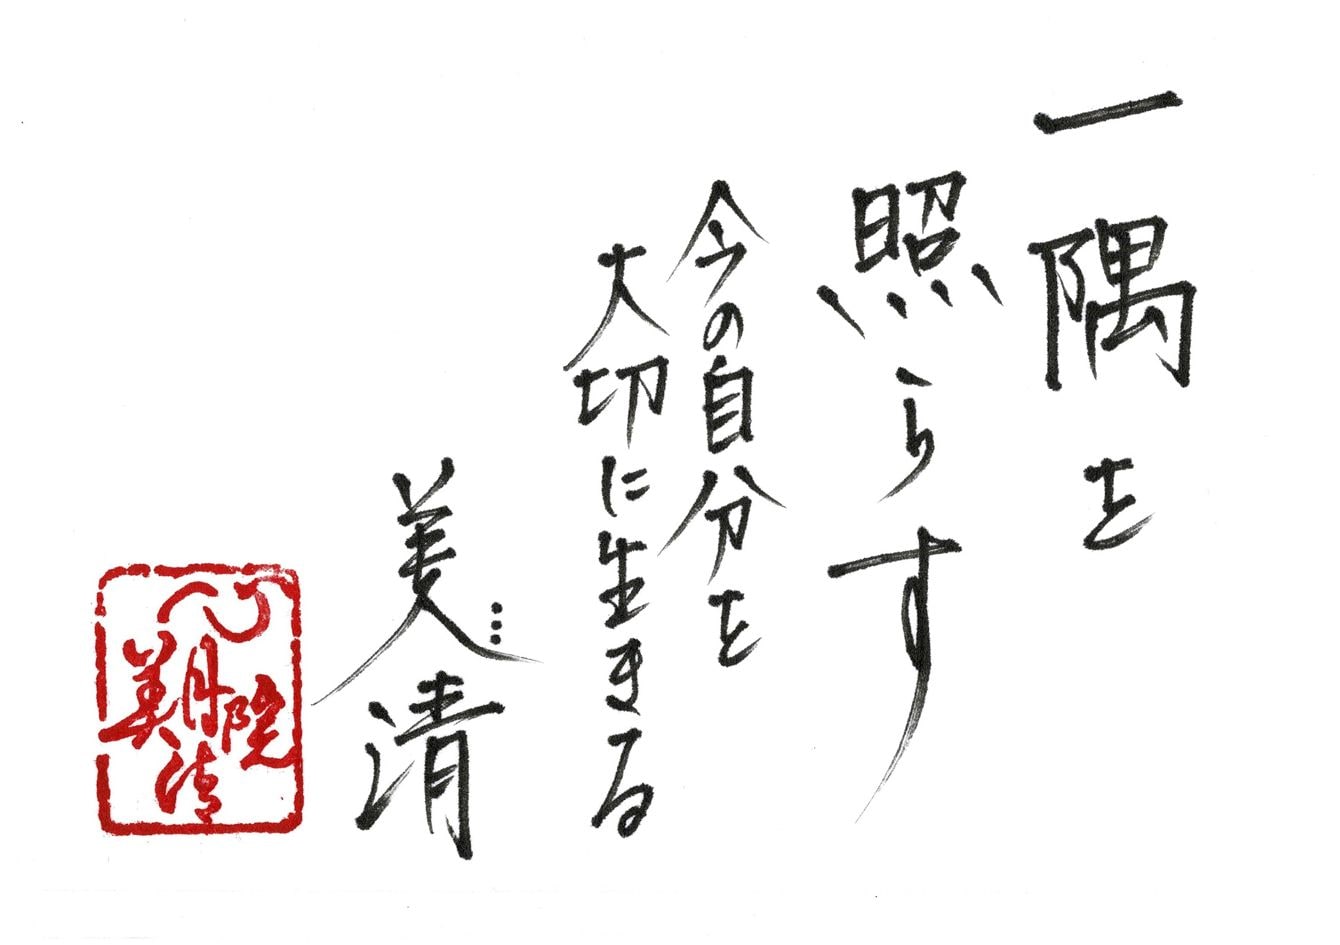 一隅を
照らす
今の自分を
大切に生きる
美清
心月院
美清